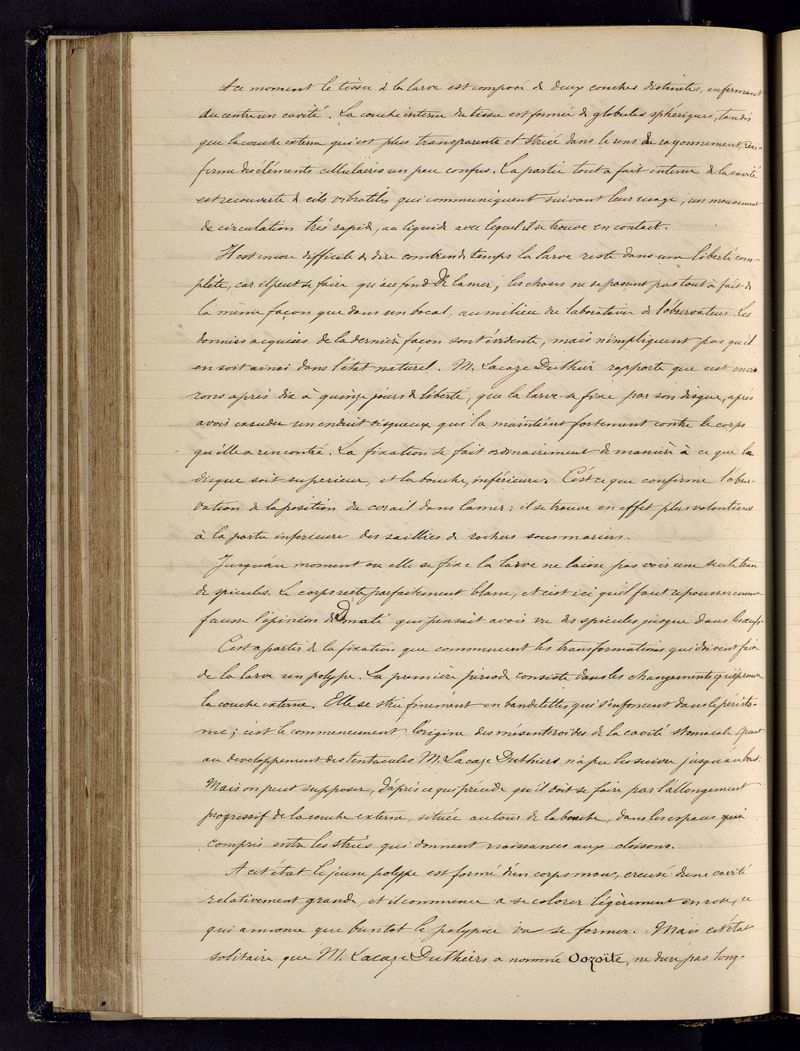 A ce moment le tissu de la larve est composé de deux couches distinctes, enfermant
au centre un cavité. La couche interne du tissu est formée de globules sphériques, tandis
que la couche externe qui est plus transparente et striée dans le sens de rayonnement, ren-
ferme des éléments cellulaires un peu confus. La partie tout a fait interne de la cavité
est recouverte de cils vibratiles qui communiquent suivant leur usage, un mouvement
de circulation trés rapide, au liquide avec lequel il se trouve en contact.
Il est encore difficile de dire combien de temps la larve reste dans une liberté com-
plète, car il peut se faire qu'au fond de la mer, les choses ne se passent pas tout à fait de
la même façon que dans un bocal, au milieu du laboratoire de l'observateur. Les
données acquises de la dernière façon sont évidente, mais n'impliquent pas qu'il
en soit ainsi dans l'état naturel. M. Lacaze Duthier rapporte que c'est envi-
rons aprés dix à quinze jours de liberté, que la larve se fixe par son disque, aprés
avoir exsudée un enduit visqueux qui la maintiens fortement contre le corps
qu'elle a rencontré. La fixation se fait ordinairement de manière à ce que le
disque soit superieur, et la bouche inférieure. C'est ce que confirme l'obser-
vation de la position du corail dans la mer: il se trouve en effet plus volontiers
à la partie inferieure des saillies de rochers sous marins.
Jusqu'au moment ou elle se fixe la larve ne laisse pas voir une seule trace
de spicules. Le corps reste parfaitement blanc, et c'est ici qu'il faut repousser comme
fausse l'opinion de Donati qui pensait avoir vu des spicules jusque dans les œufs.
C'est a partir de la fixation que commencent les transformations qui doivent faire
de la larve un polype. La première période consiste dans les changements qu'éprouve
la couche externe. Elle se strie finement en bandelettes qui s'enfoncent dans le péristo-
me; c'est le commencement l'origine des mésenteroïdes de la cavité stomacale. Quant
au developpement des tentacules M. Lacaze Duthiers n'a pu les suivre jusqu'au bout.
Mais on peut supposer, d'après ce qui précède qu'il doit se faire par l'allongement
progressif de la couche externe, située autour de la bouche, dans les espaces qui
compris entre les stries qui donnent naissances aux cloisons.
A cet état le jeune polype est formé d'un corps mou, creusé d'une cavité
relativement grande, et il commence a se colorer légèrement en rose, ce
qui annonce que bientot le polypier va se former. Mais cet état
solitaire que M. Lacaze Duthiers a nommé Oozoïte, ne dure pas long-